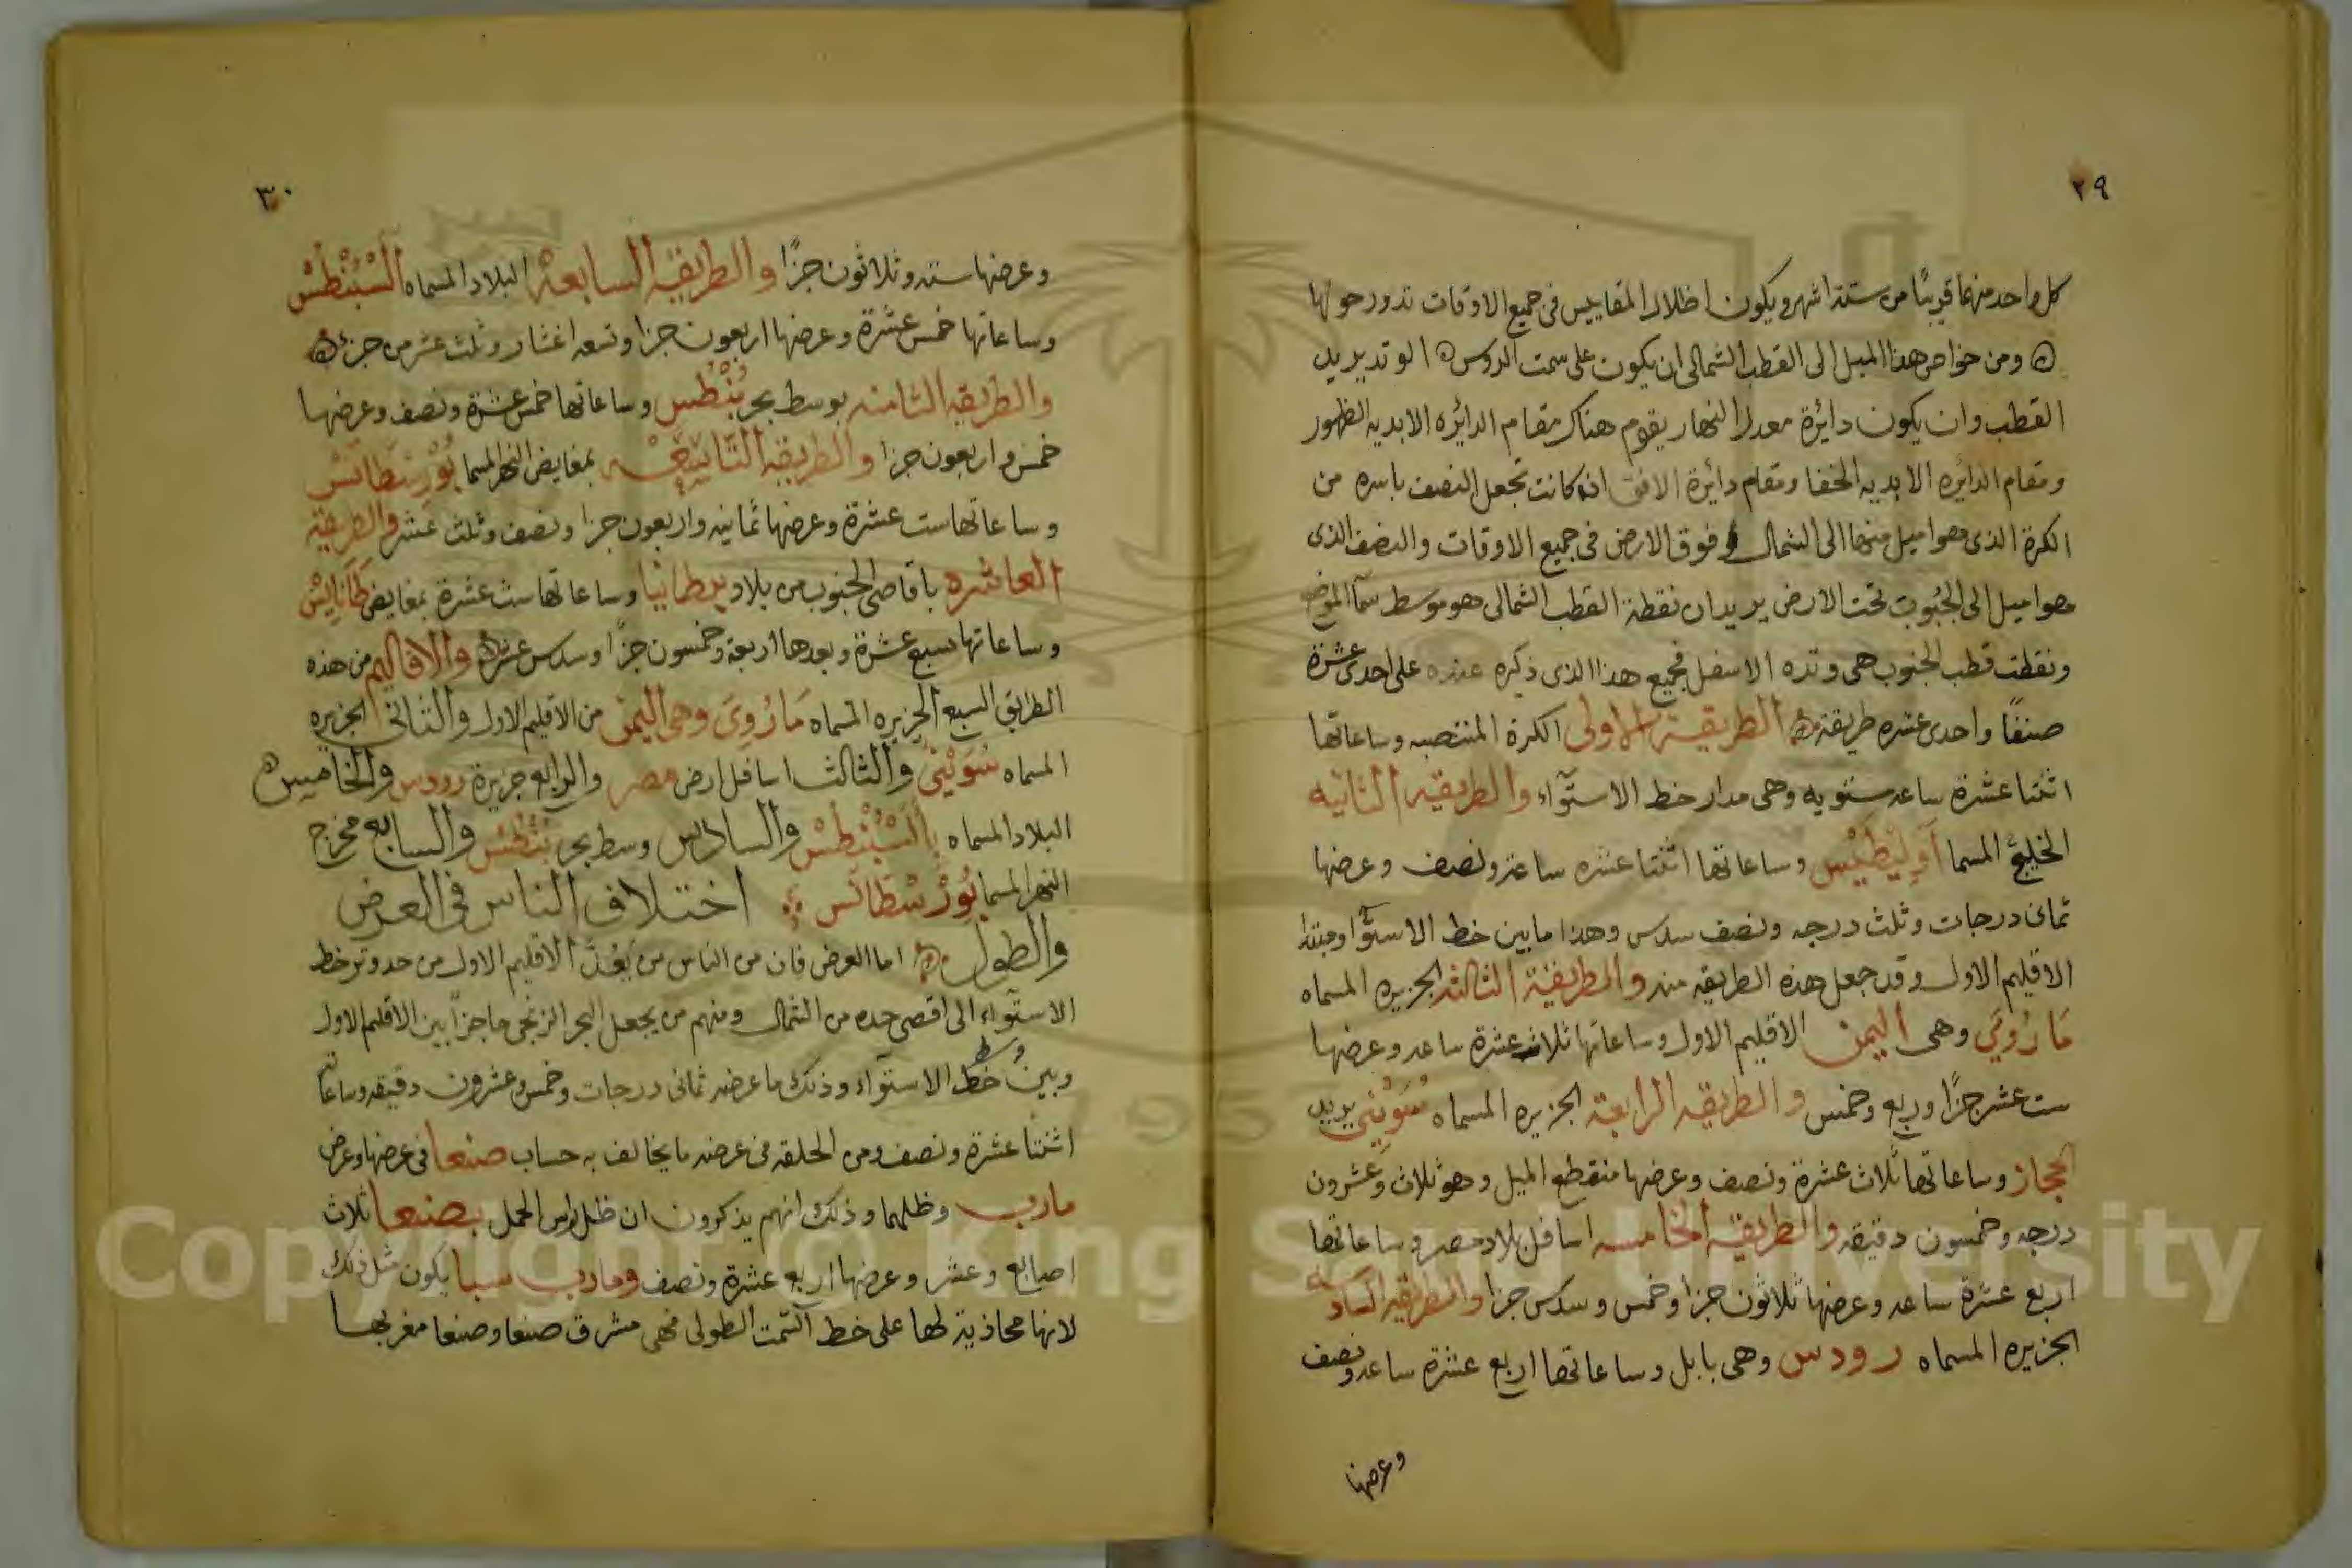 ٢٩
كل واحد منهما قريبًا من ستة اشهر ويكون اظلال المقاييس فى جميع الاوقات تدور حولها
ه ومن خواص هذا الميل الى القطب الشمالى ان يكون على سمت الروس ه الوتد يريد
القطب وان يكون دائرة معدل النهار يقوم هناك مقام الدائره الابديه الظهور
ومقام الدائره الابديه الخفا ومقام دائرة الافق اذ كانت تجعل النصف باسره من
الكرة الذى هو اميل منها الى الشمال فوق الارض فى جميع الاوقات والنصف الذى
هو اميل الى الجنوب تحت الارض يريد ان نقطة القطب الشمالى هو موسط سمآ الموضع
ونقطت قطب الجنوب هى وتده الاسفل فجميع هذا الذى ذكره عنده على احدى عشرة
صنفًا واحدى عشره طريقة ه الطريقة الاولى الكرة المنتصبه وساعاتها
اثنتا عشرة ساعه مستويه وهى مدار خط الاستوآء والطريقه الثانيه
الخليج المسما أَوَلِيطِيْس وساعاتها اثنتا عشره ساعة ونصف وعرضها
ثمان درجات وثلث درجه ونصف سدس وهذا ما بين خط الاستوآ ومبتدا
الاقليم الاول وقد جعل هذه الطريقه منه والطريقة الثالثه الجزيره المسماه
مَارُوِي وهى اليمن الاقليم الاول وساعاتها ثلاث عشرة ساعه وعرضها
ست عشر جزًا وربع وخمس والطريقه الرابعة الجزيره المسماه سُوَيْنِي يريد
الحجاز وساعاتها ثلاث عشرة ونصف وعرضها منقطع الميل وهو ثلاث وعشرون
درجه وخمسون دقيقه والطريقه الخامسه اسافل بلاد مصر وساعاتها
اربع عشرة ساعه وعرضها ثلاثون جزا وخمس وسدس جزا والطريقه السادسه
الجزيره المسماه رودس وهى بابل وساعاتها اربع عشرة ساعه ونصف
وعرضها
٣٠
وعرضها سته وثلاثون جزًا والطريقه السابعة البلاد المسماه أَلَسْبُنْطُسْ
وساعاتها خمس عشرة وعرضها اربعون جزا وتسعه اعشار وثلث عشر من جزء ه
والطريقه الثامنه بوسط بحر بُنْطُس وساعاتها خمس عشرة ونصف وعرضها
خمس واربعون جزا والطريقه التَّاسِعَه بمغايض النهر المسما بُوْرِسْطَانَسْ
وساعاتها ست عشرة وعرضها ثمانيه واربعون جزا ونصف وثلث عشر والطريقة
العاشره باقاصى الجنوب من بلاد برطانيا وساعاتها ست عشرة بمغايض طَانَايِسْ
وساعاتها سبع عشرة وبعدها اربعة وخمسون جزًا وسدس عشر ه والاقاليم من هذه
الطرايق السبع الجزيره المسماه مَارُوِيَ وهى اليمن من الاقليم الاول والثانى الجزيره
المسماه سُوَيْنِيْ والثالث اسافل ارض مصر والرابع جزيرة رودس والخامس ه
البلاد المسماه بأَلَسْبُنْطُسْ والسادس وسط بحر بُنْطُسْ والسابع مخرج
النهر المسما بُوْرُسْطَانَس اختلاف الناس فى العرض
والطول ه اما العرض فان من الناس من يَعُدّ الاقليم الاول من حد وتر خط
الاستوآء الى اقصى حده من الشمال ومنهم من يجعل البحر الزنجى حاجزًا بين الاقليم الاول
وبين وسط خط الاستوآء وذلك ما عرضه ثمانى درجات وخمس وعشرون دقيقه وساعاته
اثنتا عشرة ونصف ومن الحلقه فى عرضه ما يخالف به حساب صنعا فى عرضها وعرض
مارب وظلهما وذلك انهم يذكرون ان ظل راس الحمل بصنعا ثلاث
اصابع وعشر وعرضها اربع عشرة ونصف ومارب سبا يكون مثل ذلك
لانها محاذية لها على خط السمت الطولى فهى مشرق صنعا وصنعا مغربها
Copyright © King Saud University
1957